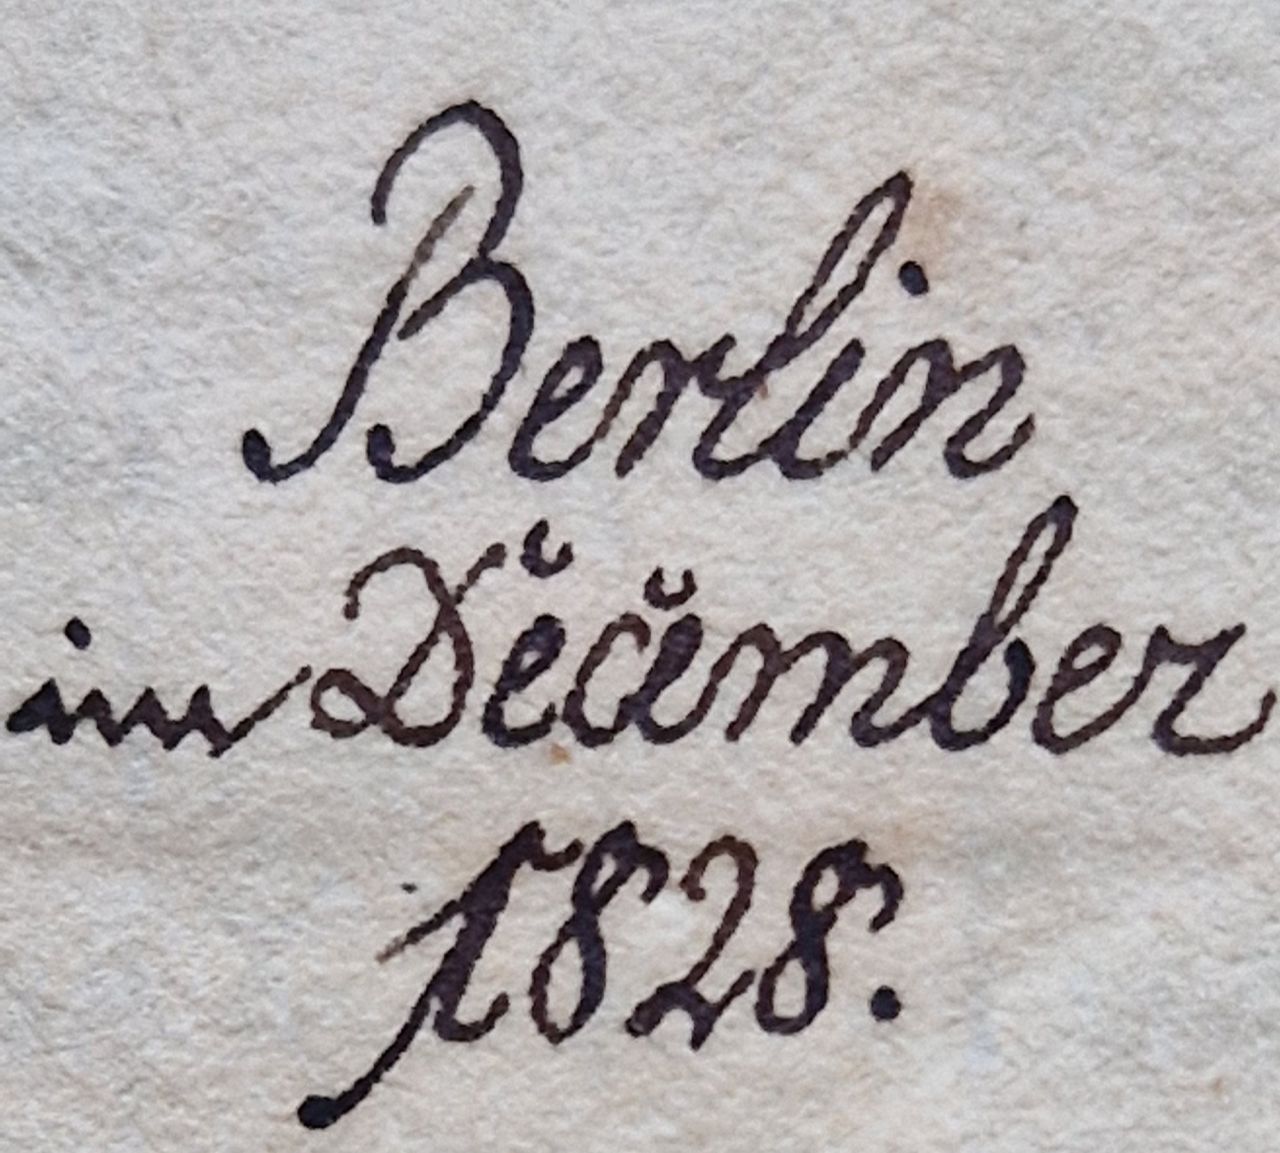 Berlin
im December
1828.